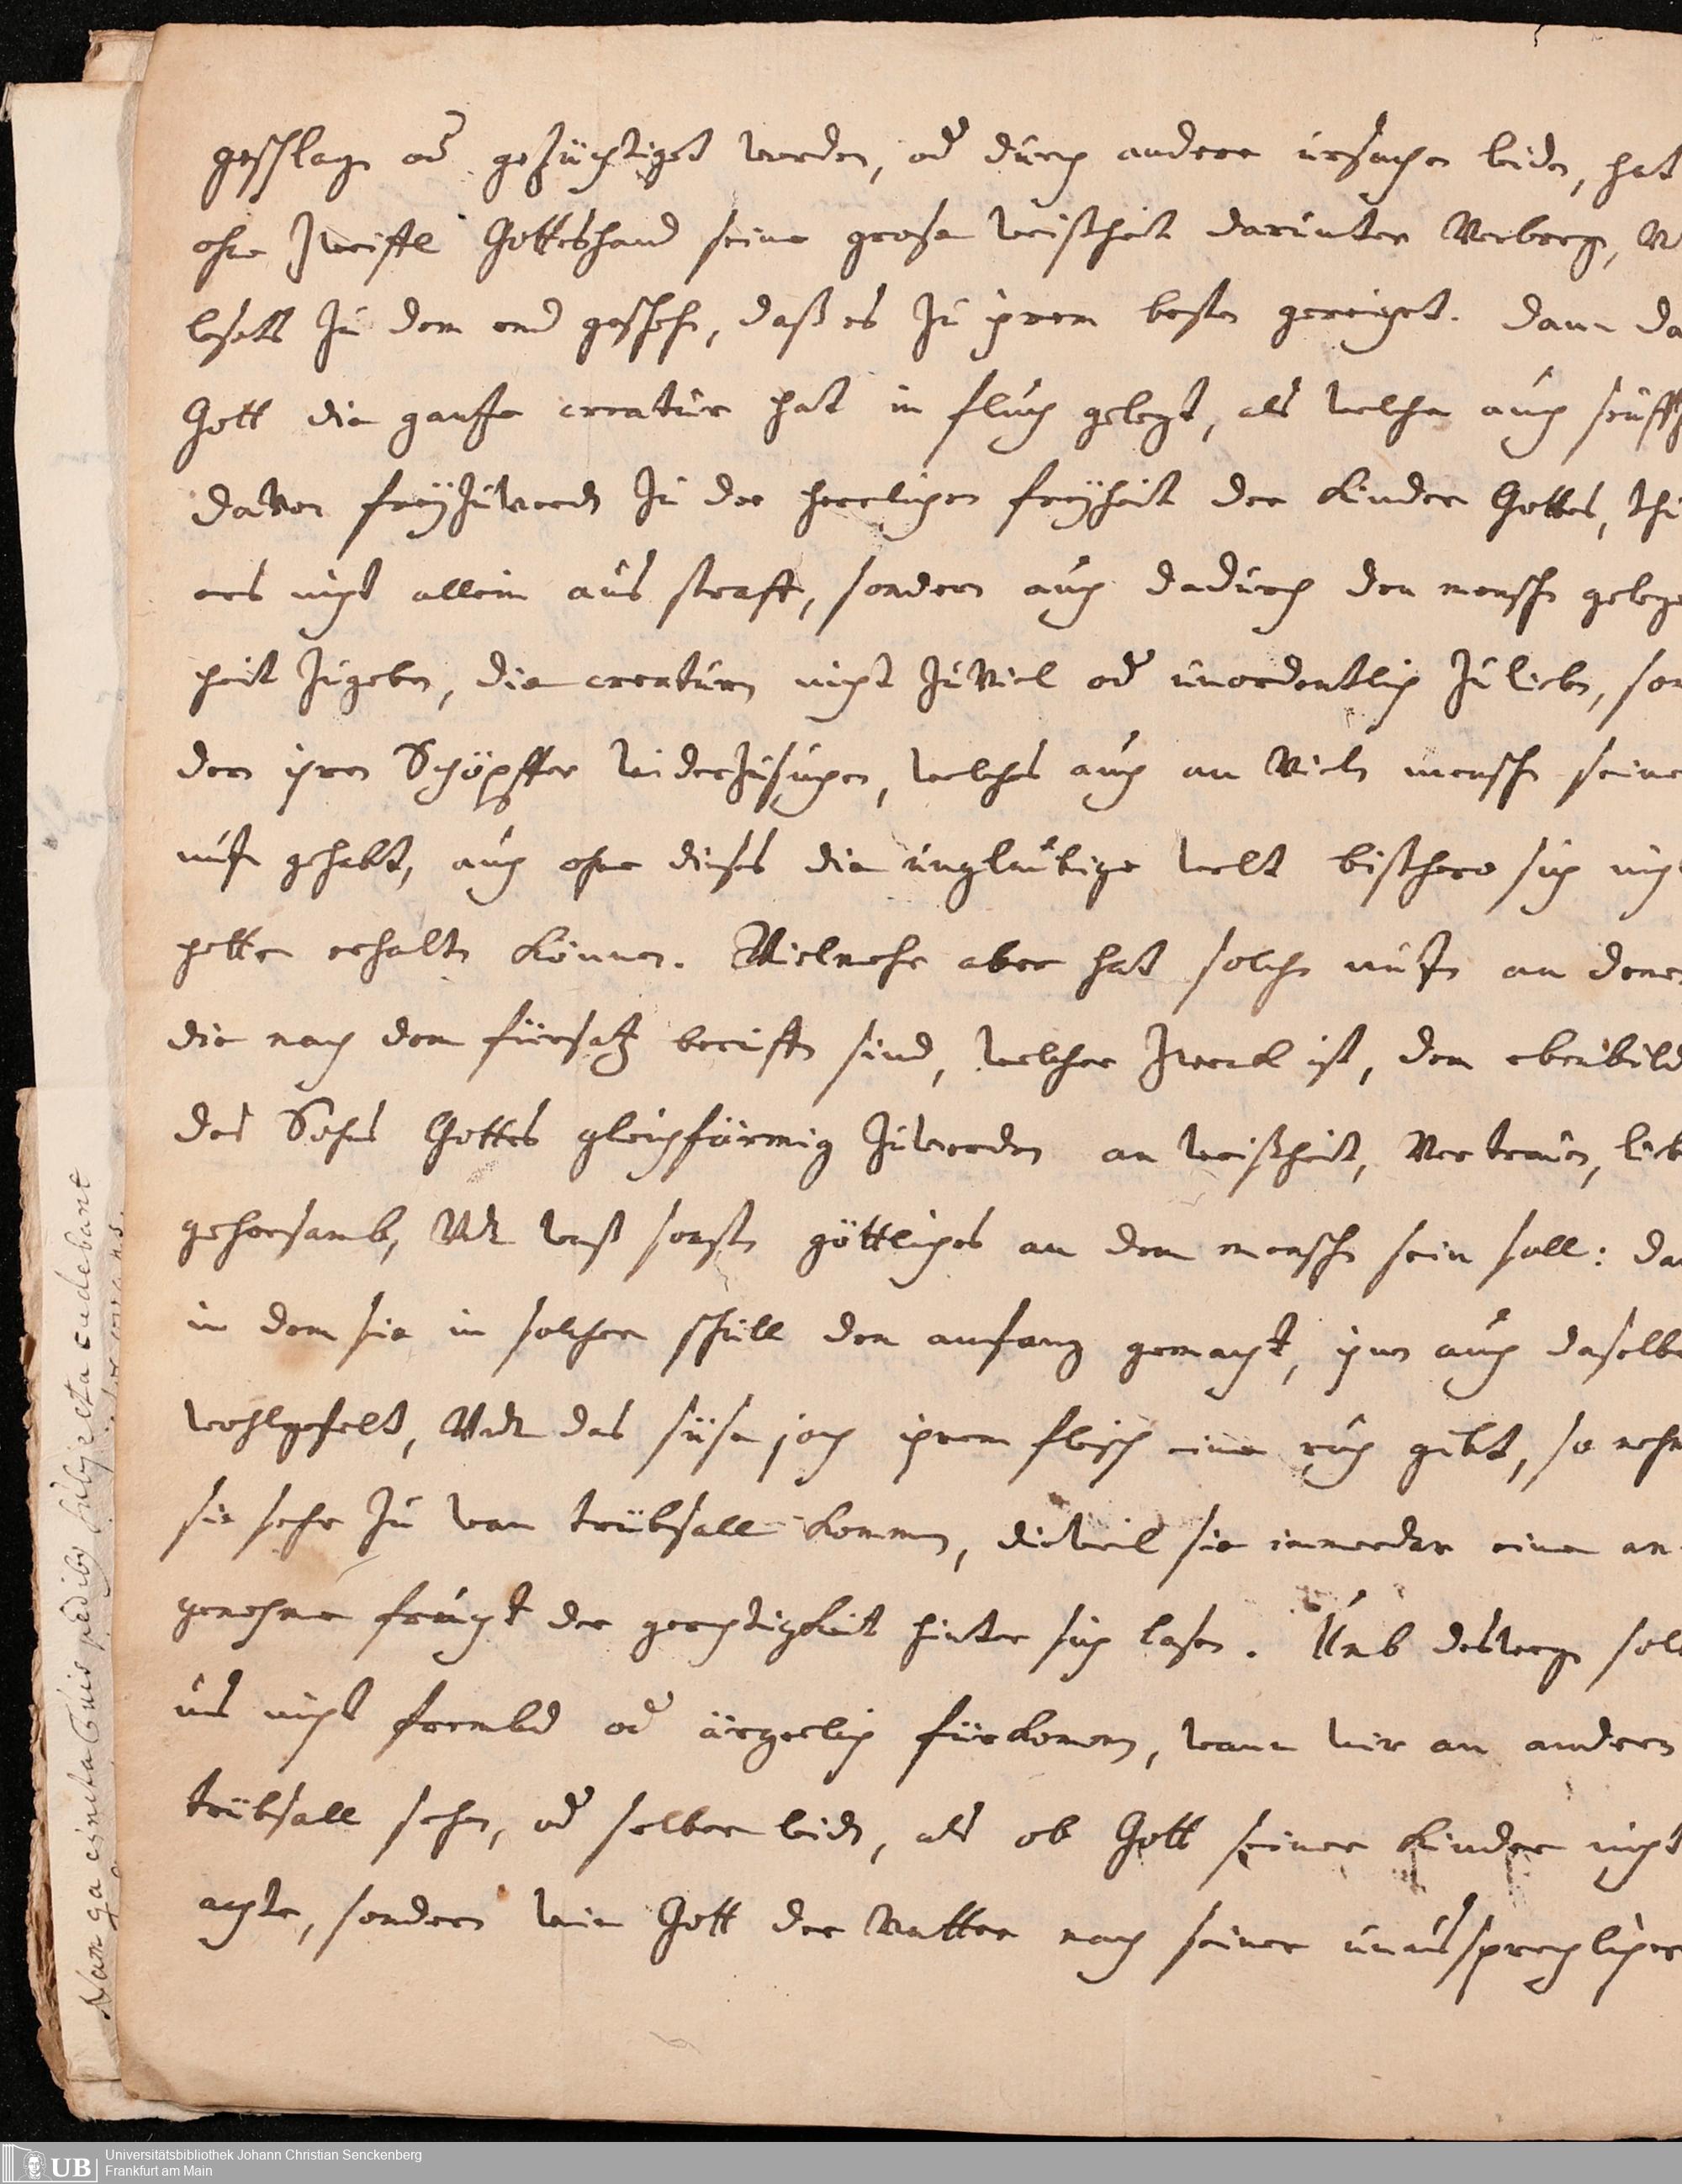 geschlagen od gezüchtiget werden, od durch andere ursachen leiden, hat
ohne Zweiffel Gotteshand seine grose weißheit darunter Verborgen,
lesetts zu dem end geschehen, daß es zu ihrem besten gereichet. dann da
Gott die gantze creatur hat in fluch gelegt, als welche auch seuffz
davon freÿzuwerden zu der herrlichen freÿheit der Kinder Gottes,
ers nicht allein aus straff, sondern auch dadurch den menschen gelege
heit zugeben, die creaturen nicht zuviel od unordentlich zu lieben, son
dern ihren Schöpffer widerzusuchen, welches auch an Vielen menschen seinen
nutzen gehabt, auch ohne dieses die unglaubige welt bißhero sich nicht
hette erhalten können. Vielmehr aber hat solches nutzen an denen
die nach dem fürsatz beruffen sind, welcher Zweck ist, dem ebenbild
des Sohns Gottes gleichförmig zuwerden an weißheit, Vertrauen, lieb
gehorsamb, Vnd waß sonsten göttliches an dem menschen sein soll: dan
in dem sie in solcher schull den anfang gemacht, ihnen auch daselbe
wohlgefelt, Vnd das süse joch ihrem fleisch eine ruh gibt, so nehm
sie sehr zu wan trübsall kommen, dieweil sie immerdar eine an-
genehme frucht der gerechtigkeit hinter sich lasen. Umb deswegen soll
uns nicht frembd od ärgerlich fürkommen, wann wir an andern
trübsall sehen, od selber leiden, als ob Gott seiner Kinder nicht
achte, sondern wie Gott der Vatter nach seiner unaussprechlichen
pedibus subjecta cudebant
UB Universitätsbibliothek Johann Christian Senckenberg
Frankfurt am Main